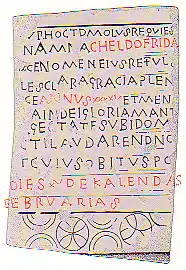 HOCTVMOLVSREQVIES
NAMRACHELDOFRIDA
CENOMENEIVSREFVL
LESCLARAGRACIAPLEN
ANNVSXXXXVETMEN
GLORIAMANT
SECTATESVBIDOM
CTILAVDARENDNC
TCVIVSOBITVSPC
DIESXVDEKALENDAS
FEBRVARIAS